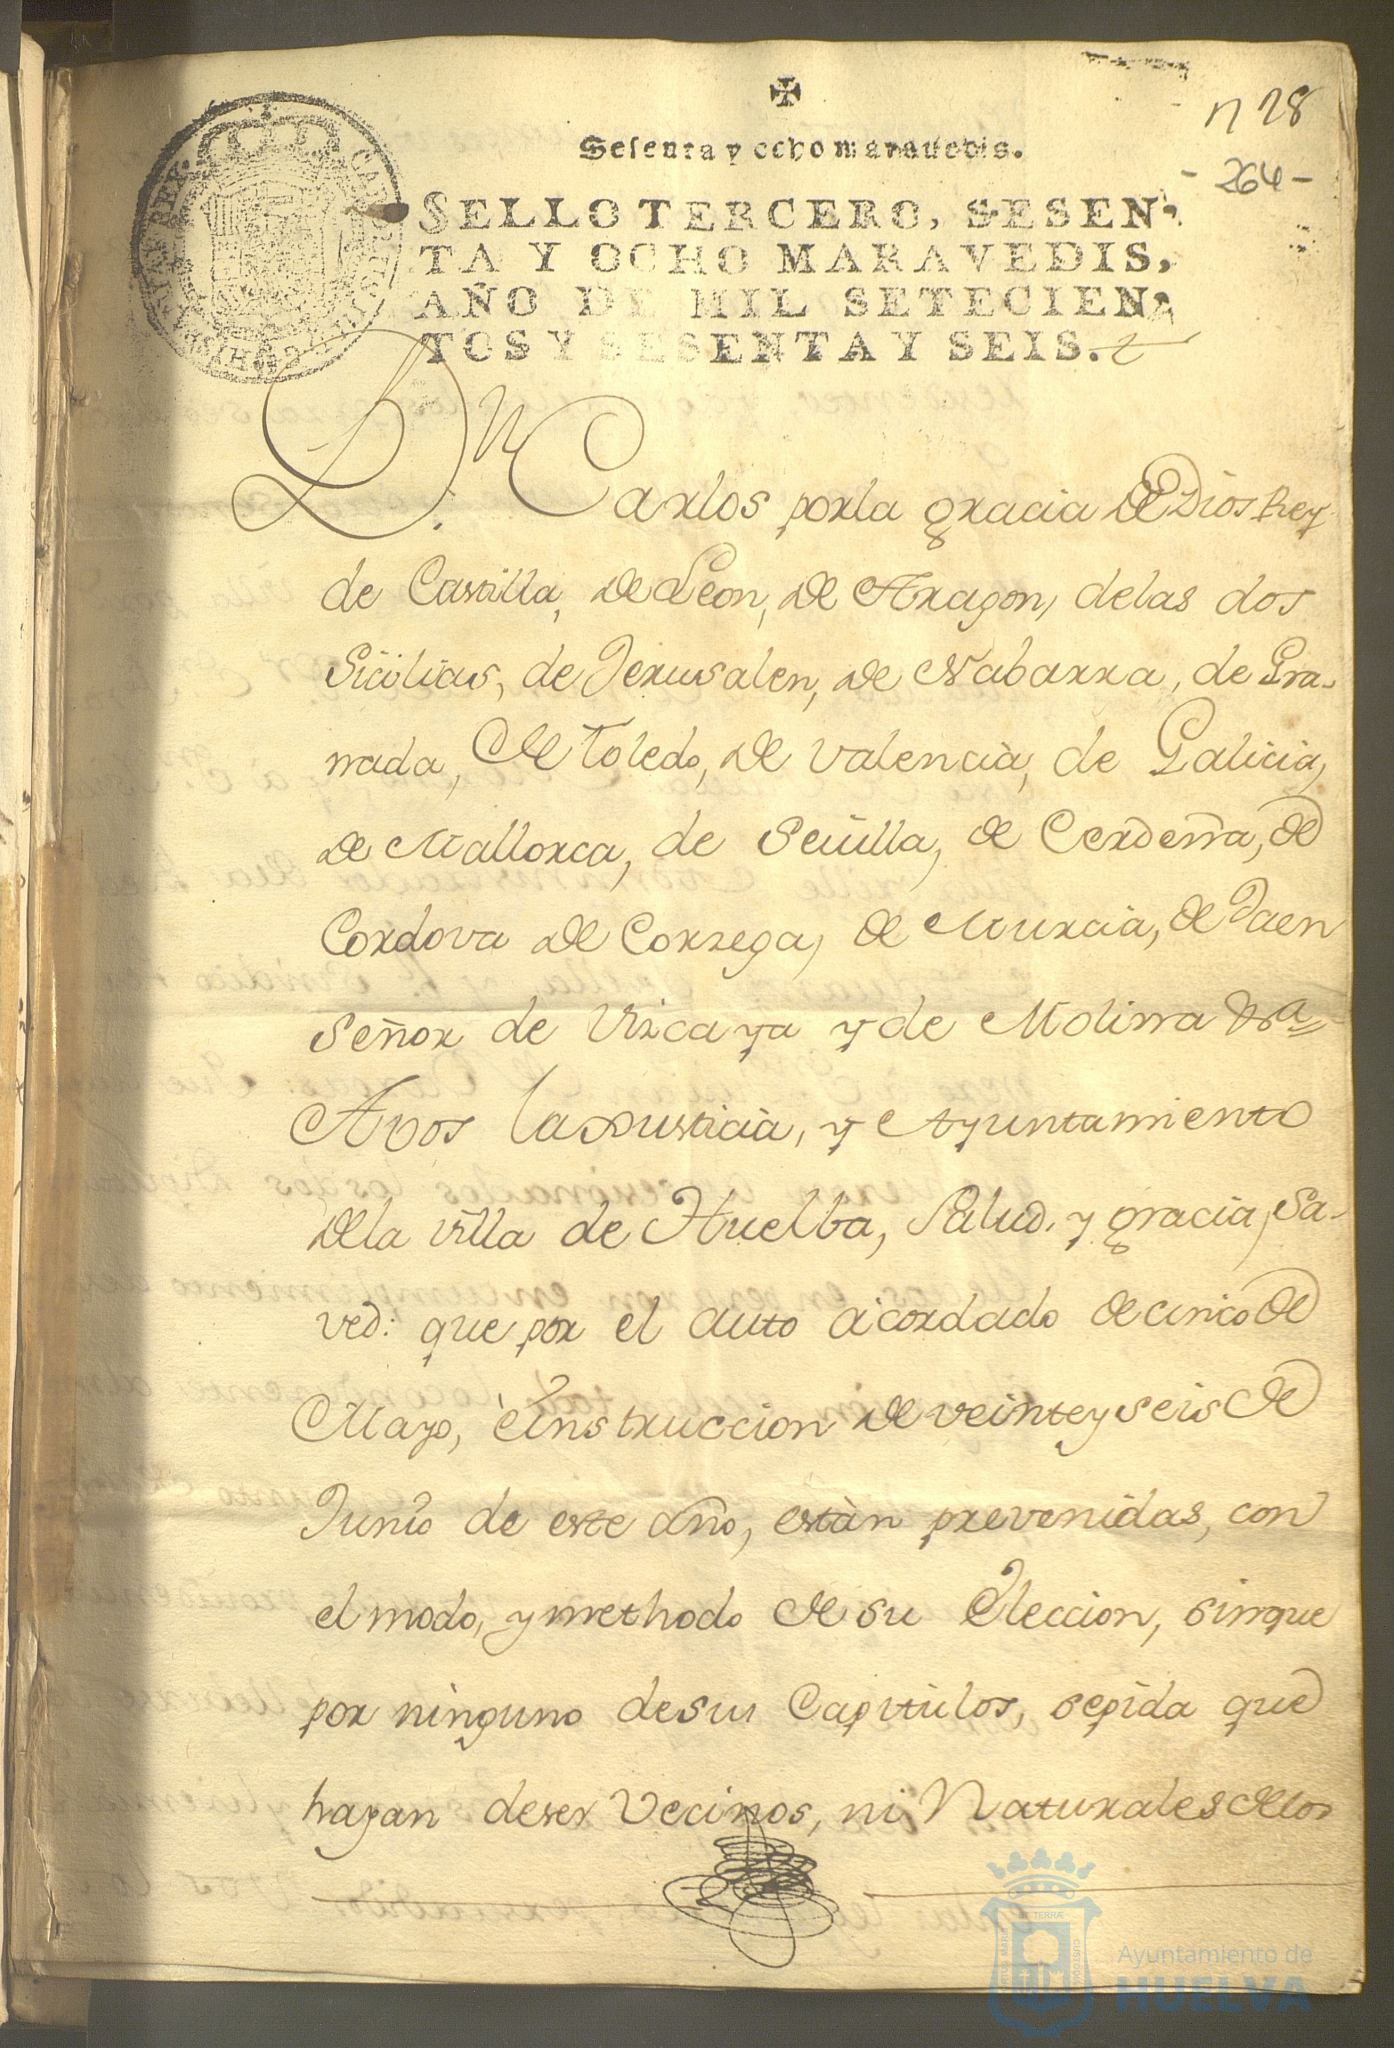 n 28
Sesenta y ocho maravedis.
- 264 -
SELLO TERCERO, SESEN-
TA Y OCHO MARAVEDIS,
AÑO DE MIL SETECIEN-
TOS Y SESENTA Y SEIS.
Dn Carlos por la gracia de Dios Rey
de Castilla, de Leon, de Aragon, delas dos
Sicilias, de Jerusalen, de Nabarra, de Gra-
nada, de Toledo, de Valencia, de Galicia,
de Mallorca, de Sevilla, de Cerdeña, de
Cordova de Corzega, de Murcia, de Jaen
Señor de Vizcaya y de Molina &a
A vos la Justicia, y Ayuntamiento
de la villa de Huelba, Salud, y gracia, Sa-
ved: que por el auto acordado de cinco de
Mayo, è Instruccion de veinte y seis de
Junio de este año, estàn prevenidas, con
el modo, y methodo de su Eleccion, sin que
por ninguno de sus Capitulos, se pida que
hayan de ser Vecinos, ni Naturales de los
Ayuntamiento de
HUELVA